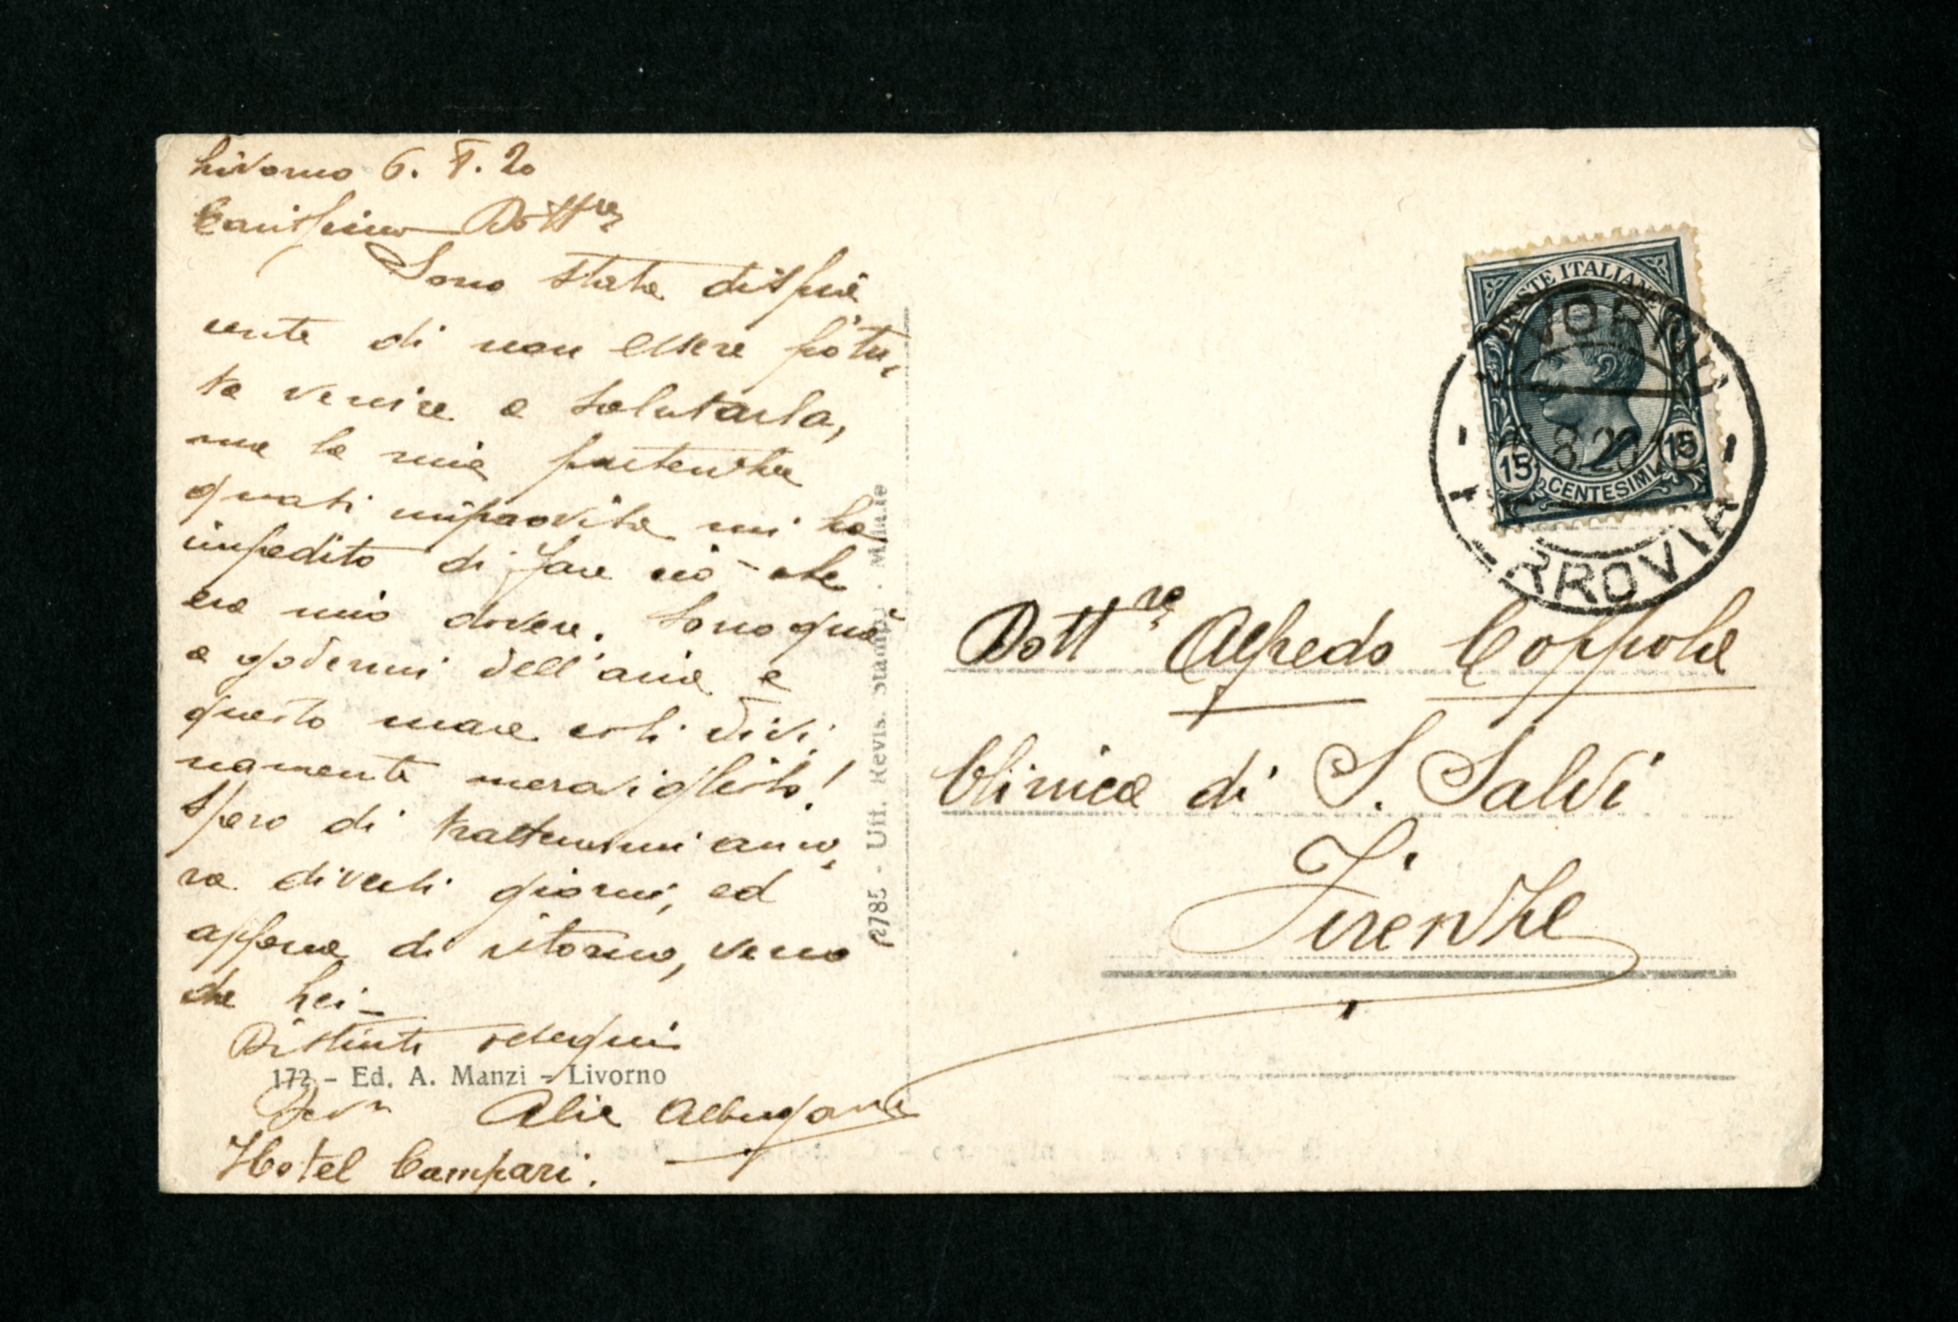 Livorno 6. 8. 20
Carissimo Dott.re
Sono stata dispia
cente di non essere potu,
ta venire a salutarla,
ma la mia partenza
quasi improvvisa mi ha
impedito di fare ciò che
era mio dovere. Sono quà
a godermi dell'aria e
questo mare così divi,
namente meraviglioso!
Spero di trattenermi anco,
ra diversi giorni, ed
appena di ritorno, verrò
da Lei -
Distinti ossequi
172 - Ed. A. Manzi - Livorno
Dev.a
Hotel Campari.
2785 - Uff. Revis. Stampa - Milano
POSTE ITALIANE
15 CENTESIMI 15
LIVORNO
6.8.20
FERROVIA
Dott.re Alfredo Coppola
Clinica di S. Salvi
Firenze